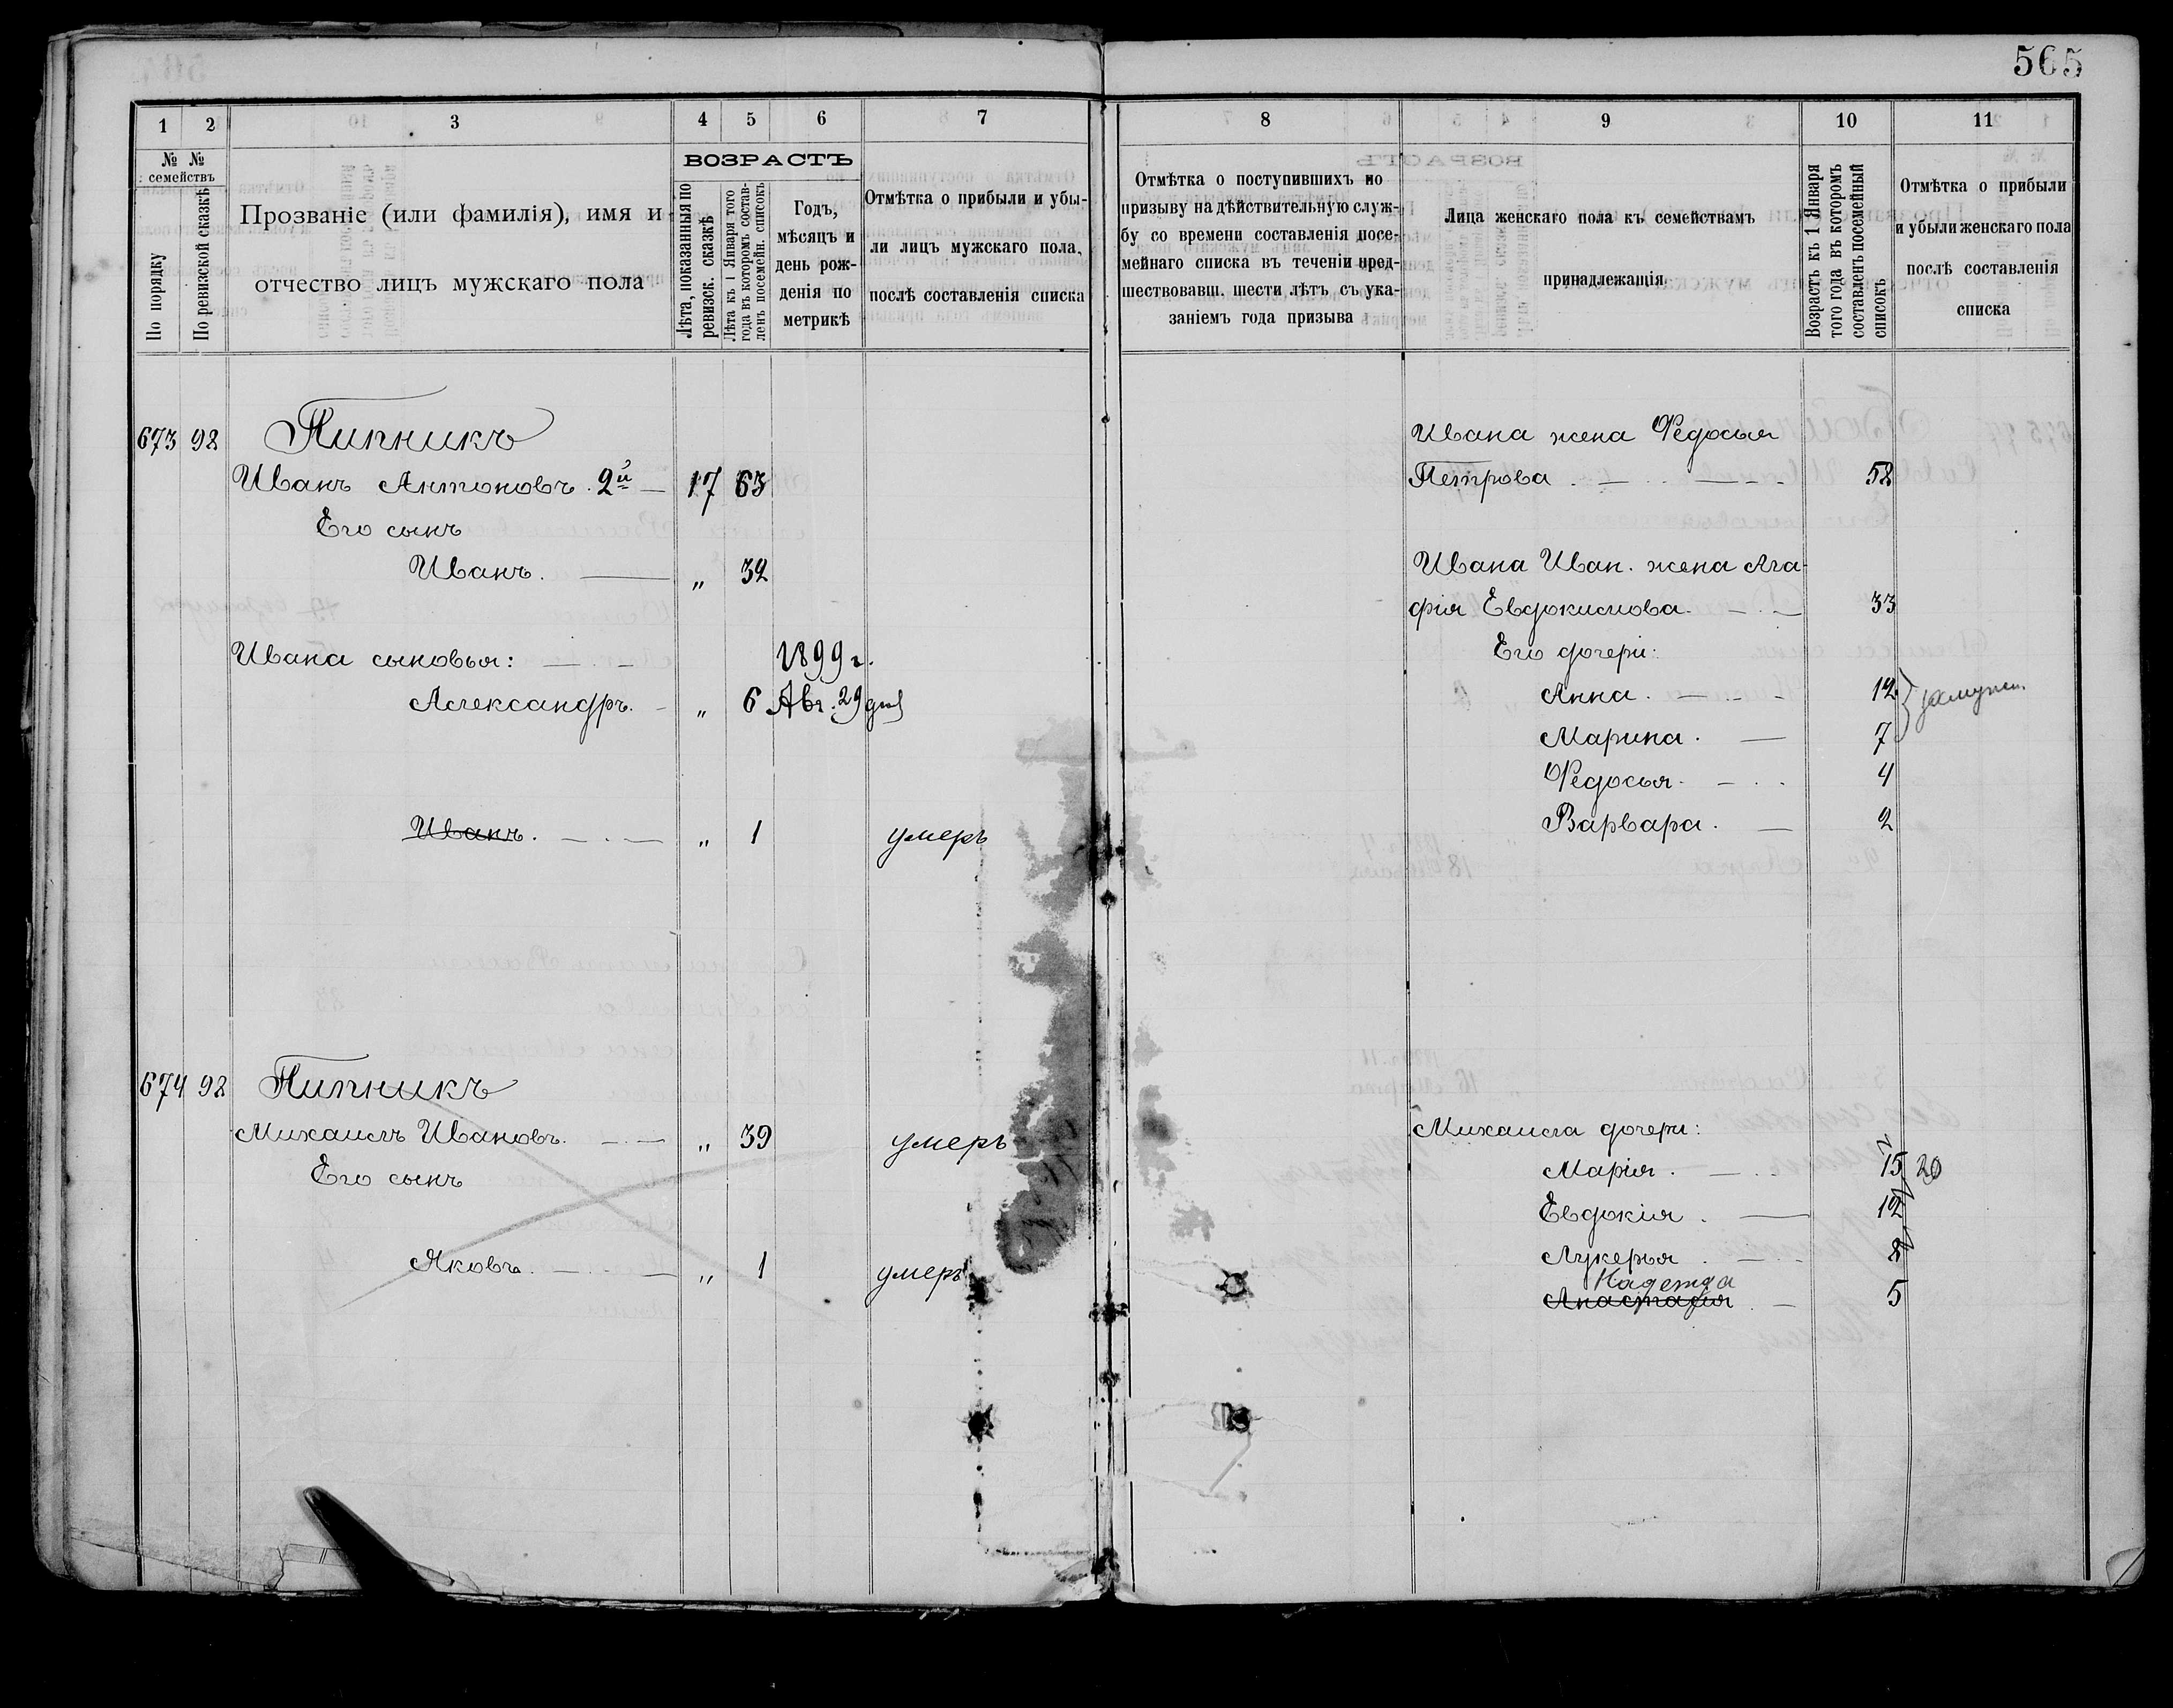 565
1 2 3 4 5 6 7
№ № семействъ
По порядку
По ревизской сказкѣ
Прозваніе (или фамилія), имя и
отчество лицъ мужскаго пола
ВОЗРАСТЪ
Лѣта, показанныя по
ревизск. сказкѣ
Лѣта къ 1 Января того
года въ которомъ состав-
ленъ посемейн. списокъ
Годъ,
мѣсяцъ и
день рож-
денія по
метрикѣ
Отмѣтка о прибыли и убы-
ли лицъ мужскаго пола,
послѣ составленія списка
673 92 Пипникъ
Иванъ Антоновъ 2й 17 63
Его сынъ
Иванъ. „ 32
Ивана сыновья: 1899 г.
Александръ. „ 6 Авг. 29 дня
Иванъ. „ 1 умеръ
674 92 Пипникъ
Михаилъ Ивановъ. „ 39 умеръ
Его сынъ
Яковъ. „ 1 умеръ
8 9 10 11
Отмѣтка о поступившихъ по
призыву на дѣйствительную служ-
бу со времени составленія посе-
мейнаго списка въ теченіи пред-
шествовавш. шести лѣтъ съ ука-
заніемъ года призыва
Лица женскаго пола къ семействамъ
принадлежащія
Возрастъ къ 1 Января
того года въ которомъ
составленъ посемейный
списокъ
Отмѣтка о прибыли
и убыли женскаго пола
послѣ составленія
списка
Ивана жена Федосья
Петрова 58
Ивана Иван. жена Ага-
фія Евдокимова. 33
Его дочери:
Анна. 12 замуж.
Марина. 7
Федосья. 4
Варвара. 2
Михаила дочери:
Марія. 15 20
Евдокія. 12
Лукерья. 8
Надежда
Анастасія 5